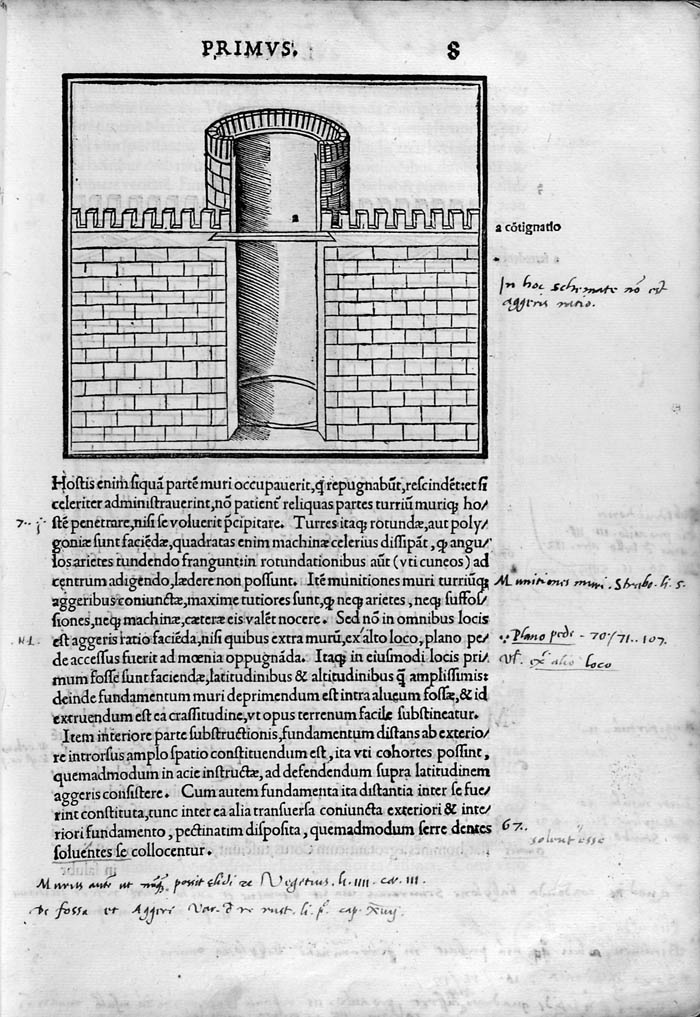 PRIMVS. 8
a
a cōtignatio
In hoc schemate nō est
aggeris ratio.
Hostis enim siquā partē muri occupauerit, q̄ repugnabūt, rescindēt: et si
celeriter administrauerint, nō patient̄ reliquas partes turriū muriq; ho/
stē penetrare, nisi se voluerit p̄cipitare. Turres itaq; rotundæ, aut poly/
goniæ sunt faciēdæ, quadratas enim machinæ celerius dissipāt, q̄ angu/
los arietes tundendo frangunt: in rotundationibus aūt (vti cuneos) ad
centrum adigendo, lædere non possunt. Itē munitiones muri turriūq;
aggeribus coniunctæ, maxime tutiores sunt, q̄ neq; arietes, neq; suffos/
siones, neq; machinæ, cæteræ eis valēt nocere. Sed nō in omnibus locis
est aggeris ratio faciēda, nisi quibus extra murū, ex alto loco, plano pe/
de accessus fuerit ad mœnia oppugnāda. Itaq; in eiusmodi locis pri/
mum fossæ sunt faciendæ, latitudinibus & altitudinibus q̄ amplissimis:
deinde fundamentum muri deprimendum est intra alueum fossæ, & id
extruendum est ea crassitudine, vt opus terrenum facile substineatur.
Item interiore parte substructionis, fundamentum distans ab exterio/
re introrsus amplo spatio constituendum est, ita vti cohortes possint,
quemadmodum in acie instructæ, ad defendendum supra latitudinem
aggeris consistere. Cum autem fundamenta ita distantia inter se fue/
rint constituta, tunc inter ea alia transuersa coniuncta exteriori & inte/
riori fundamento, pectinatim disposita, quemadmodum serre dentes
soluentes se collocentur.
Munitiones muri. Strabo. li. 5.
Plano pede - 70/71.. 107.
vł. ex alio loco
67..
solent esse
Murus aute ut possit elidi Vegetius. li. IIII. ca. III.
De fossa et Aggeri Var. d re rust. li. cap.